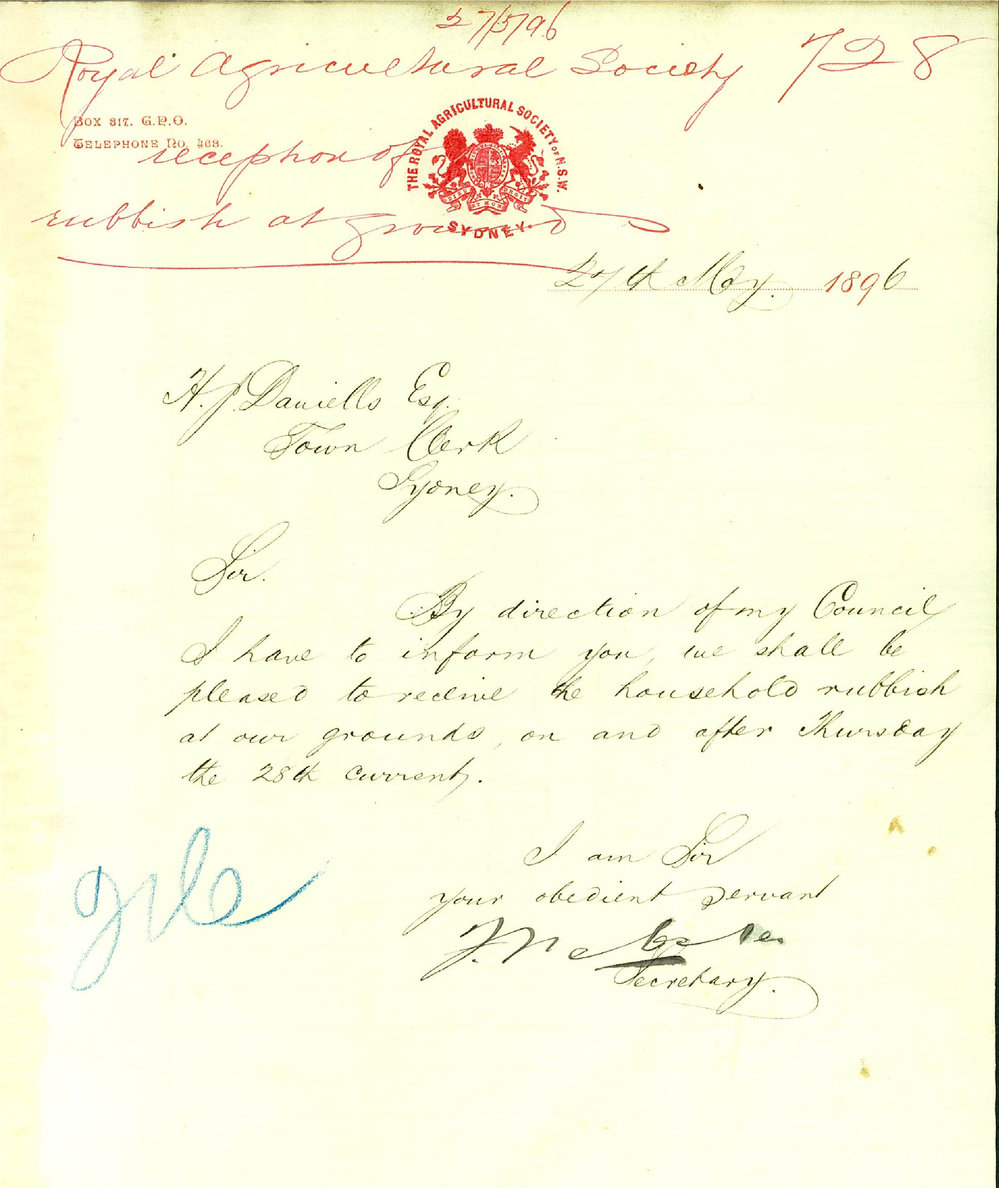 27/5/96
Royal Agricultural Society 728
BOX 317. G.P.O.
TELEPHONE NO. 468.
reception of
rubbish at ground
THE ROYAL AGRICULTURAL SOCIETY OF N.S.W.
SYDNEY.
27th May. 1896
H. J. Daniells Esq.
Town Clerk
Sydney.
Sir.
By direction of my Council
I have to inform you, we shall be
pleased to receive the household rubbish
at our grounds, on and after Thursday
the 28th current.
I am Sir
your obedient servant
Secretary.
file